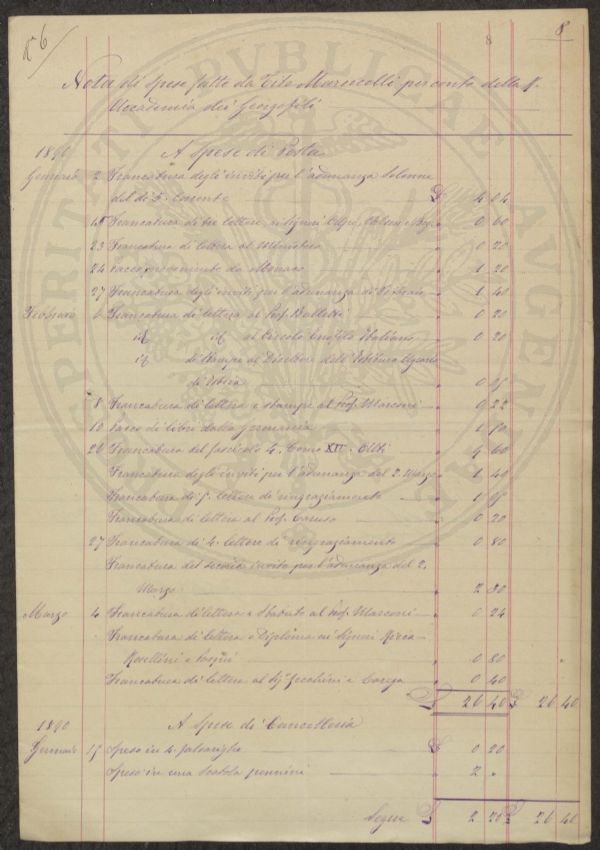 N° 6
8 8
Nota di spese fatte da Tito Marucelli per conto della R.
Accademia dei Georgofili
1890 A Spese di Posta
Gennaio 2 Francatura degli inviti per l'adunanza solenne
del dì 5. corrente £ 4 04
15 Francatura di tre lettere ai Signori 0 60
23 Francatura di lettera al Ministero 0 20
24 Pacco proveniente da Monaco 1 20
27 Francatura degli inviti per l'adunanza di 1 40
Febbraio 6 Francatura di lettera al Prof. 0 20
id id al Circolo Enofilo Italiano 0 20
id di Stampe al Direttore dell'Istituto Agrario
di 0
8 Francatura di lettera e stampe al Prof. Marconi 0 22
10 Pacco di libri dalla Germania 1
26 Francatura del fascicolo 4. Tomo XII. Atti 4 60
Francatura degli inviti per l'adunanza del 2. Marzo 1 40
Francatura di lettere di ringraziamento 1
Francatura di lettera al Prof. Caruso 0 20
27 Francatura di 4. lettere di ringraziamento 0 80
Francatura del secondo invito per l'adunanza del 2.
Marzo 2 80
Marzo 4 Francatura di lettera e Statuto al Prof. Marconi 0 24
Francatura di lettera e Diploma ai Signori Ricca
Rosellini e 0 80
Francatura di lettere ai Sigg. Zecchini e 0 40
£ 26 40 £ 26 40
1890 A Spese di Cancelleria
Gennaio Spese in 4. 0 20
Spese in una Scatola pennini 2 "
Segue £ 2 20 £ 26 40
PROSPERITATI PUBLICAE AUGENDAE